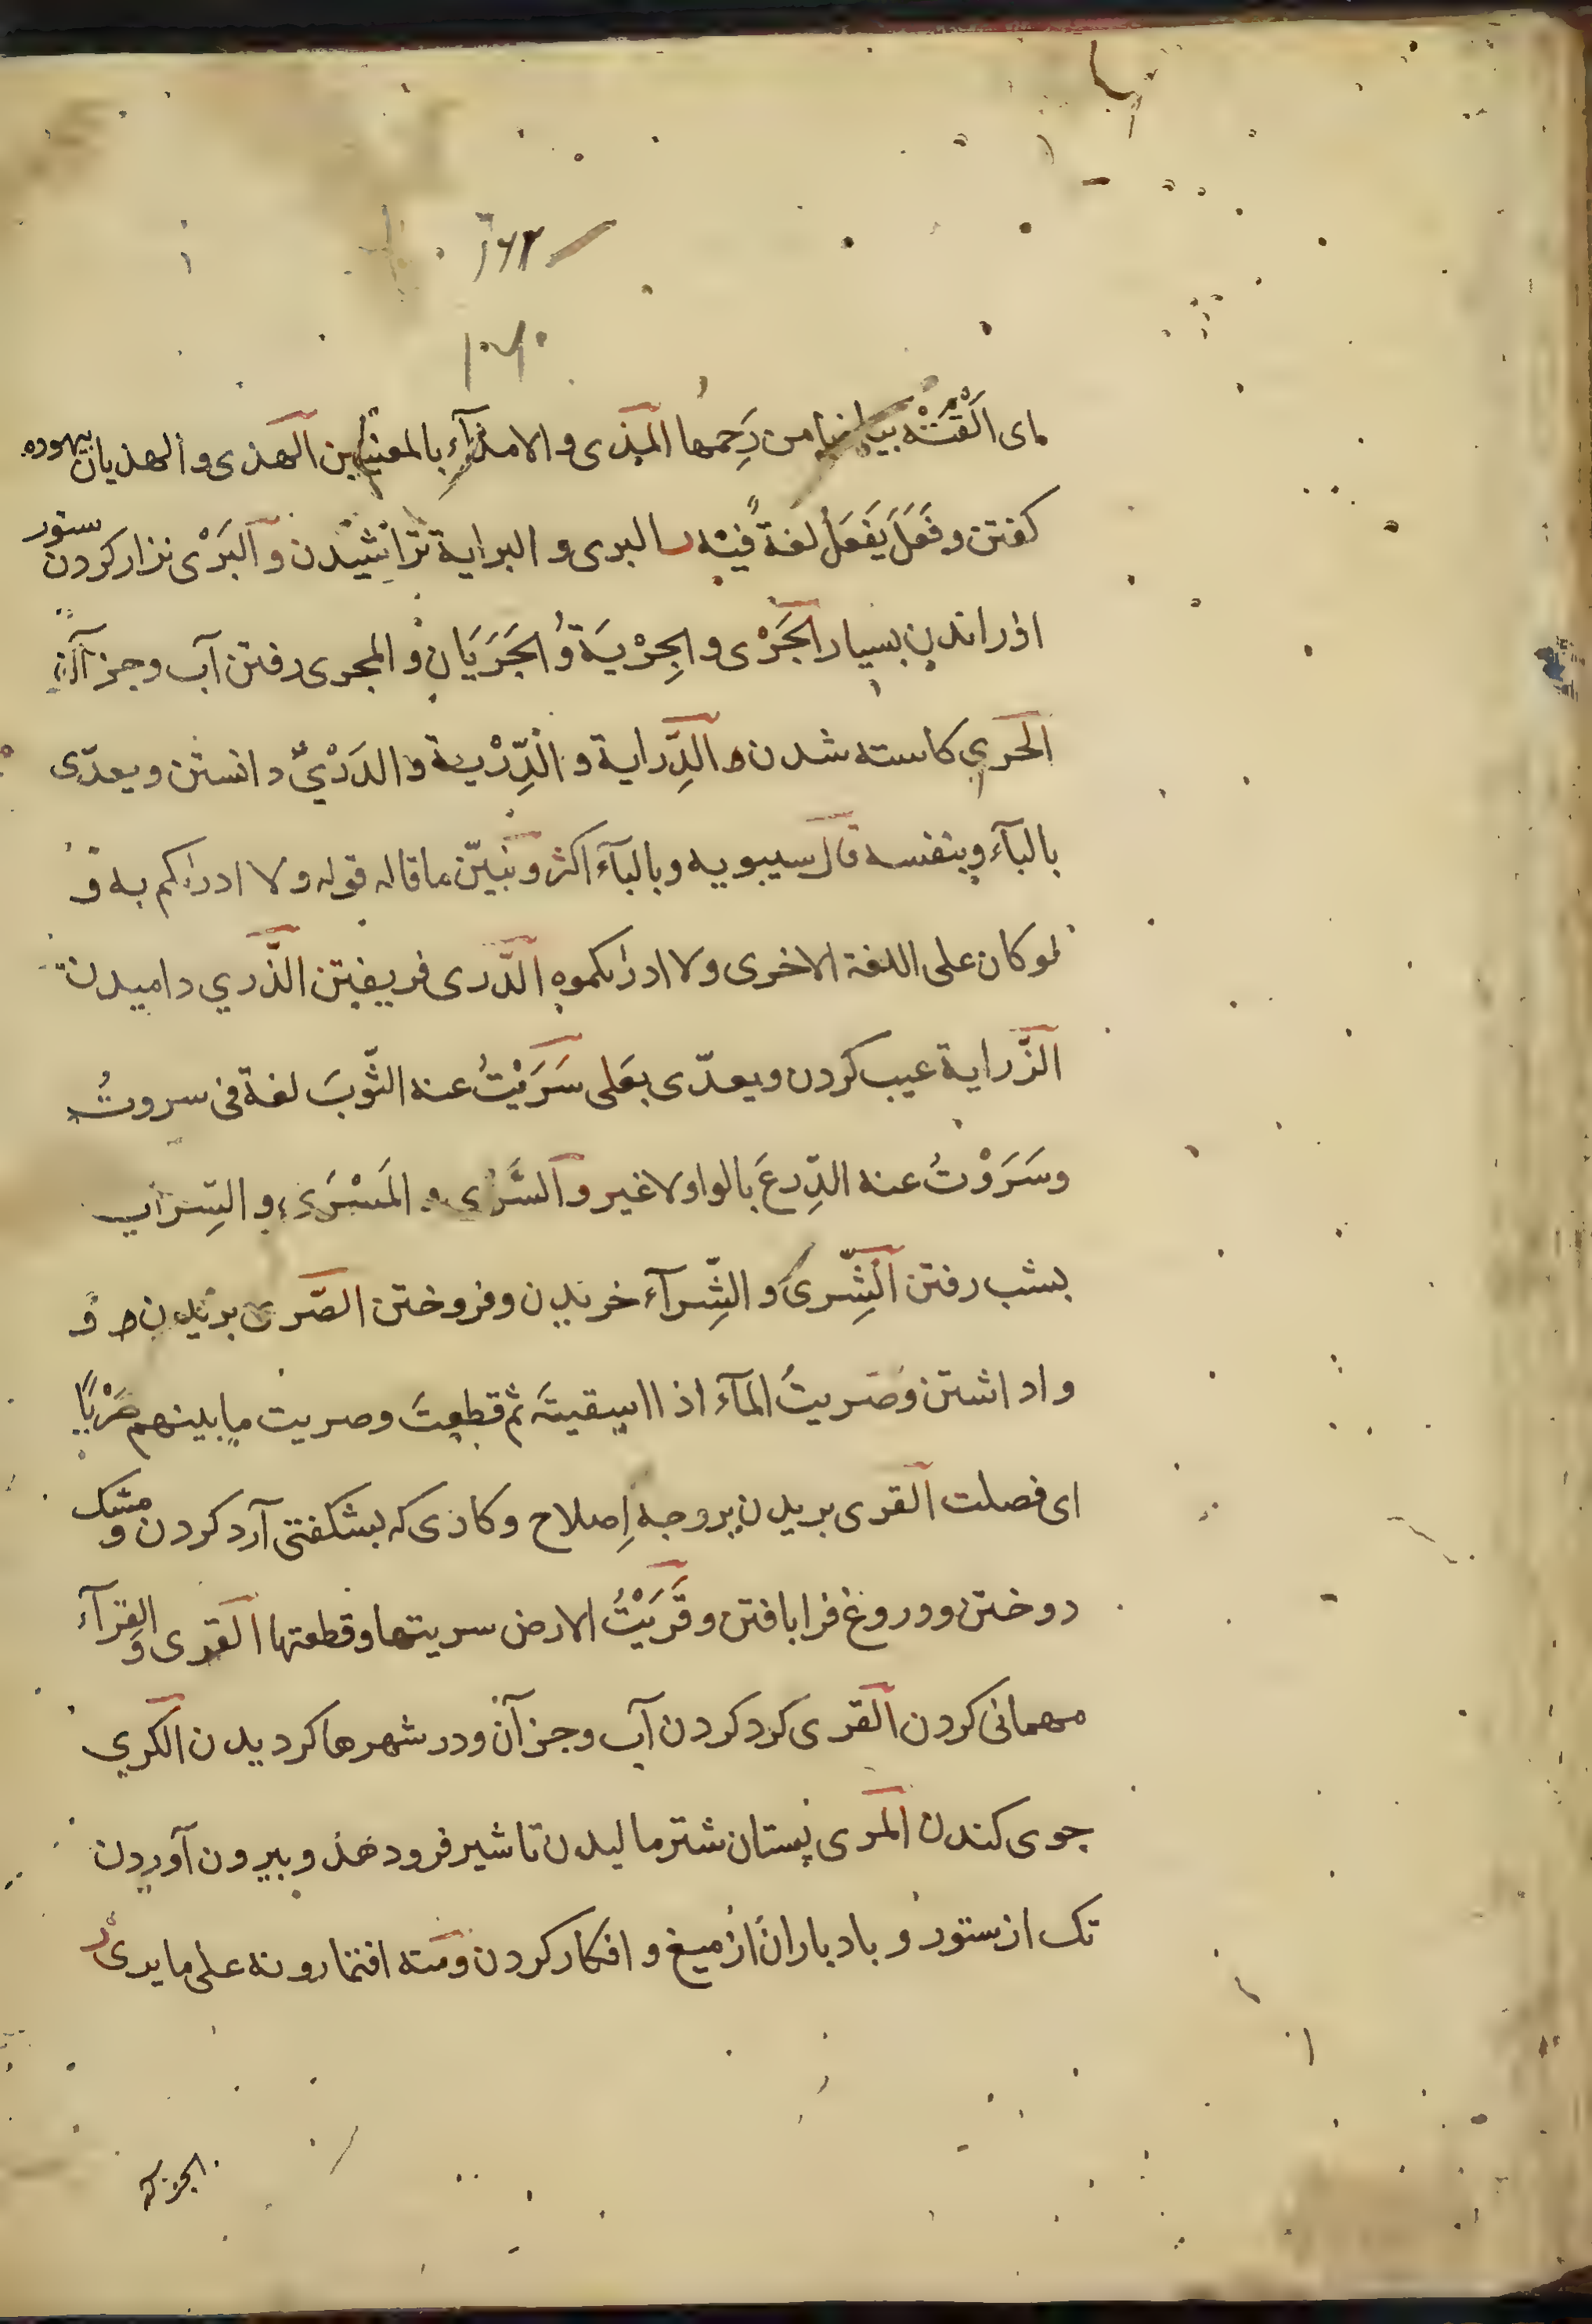 ۱۶۲
۱۰۶۰
ای اَلْقَتْه من رَحِمها المذی و الامذآء بالمعنیین الهذی و الهذیان بیهوده
کفتن و فَعَلَ یَفعَلُ لغةً فیْه البری و البرایة تراشیدن و البَرْی نزار کردن ستور
از راندن بسیار الجَرْی و الجِرْیَة و الجَرَیَان و المجری رفتن آب و جز آن
الحری کاسته شدن الدِّرایة و الدِّرْیة و الدَرْیُ دانستن و یعدّی
بالبآء و بنفسه قال سیبویه و بالبآء اکثر و تبیّن ما قاله قوله و لا ادراکم به و
لو کان علی اللغة الاخری و لا ادراکموه الدّری فریفتن الذّری دامیدن
الزّرایة عیب کردن و یعدّی بعَلی سَرَیْتُ عنه الثّوبَ لغة فی سروتُ
و سَرَوْتُ عنه الدِّرعَ بالواو لا غیر و السَّری و المَسْرَی و السِّرایة
بشب رفتن الشِّری و الشِّرآء خریدن و فروختن الصّری بریدن و
واداشتن و صَریتُ المآء اذا استقیتَه ثم قطعتَ و صریت ما بینهم صَرْیًا
ای فصلت الفری بریدن بر وجه اِصلاح و کاری که بشکفتی آرد کردن و مشک
دوختن و دروغ فرا بافتن و فَرَیْتُ الارض سریتها و قطعتها القری و القرآء
مهمانی کردن القری کرد کردن آب و جز آن و در شهرها کردیدن الکری
جوی کندن المری پستان شتر مالیدن تا شیر فرود هذ و بیرون آوردن
تک از ستور و باد باران از میغ و افکار کردن و مته افتمارونه علی ما یری